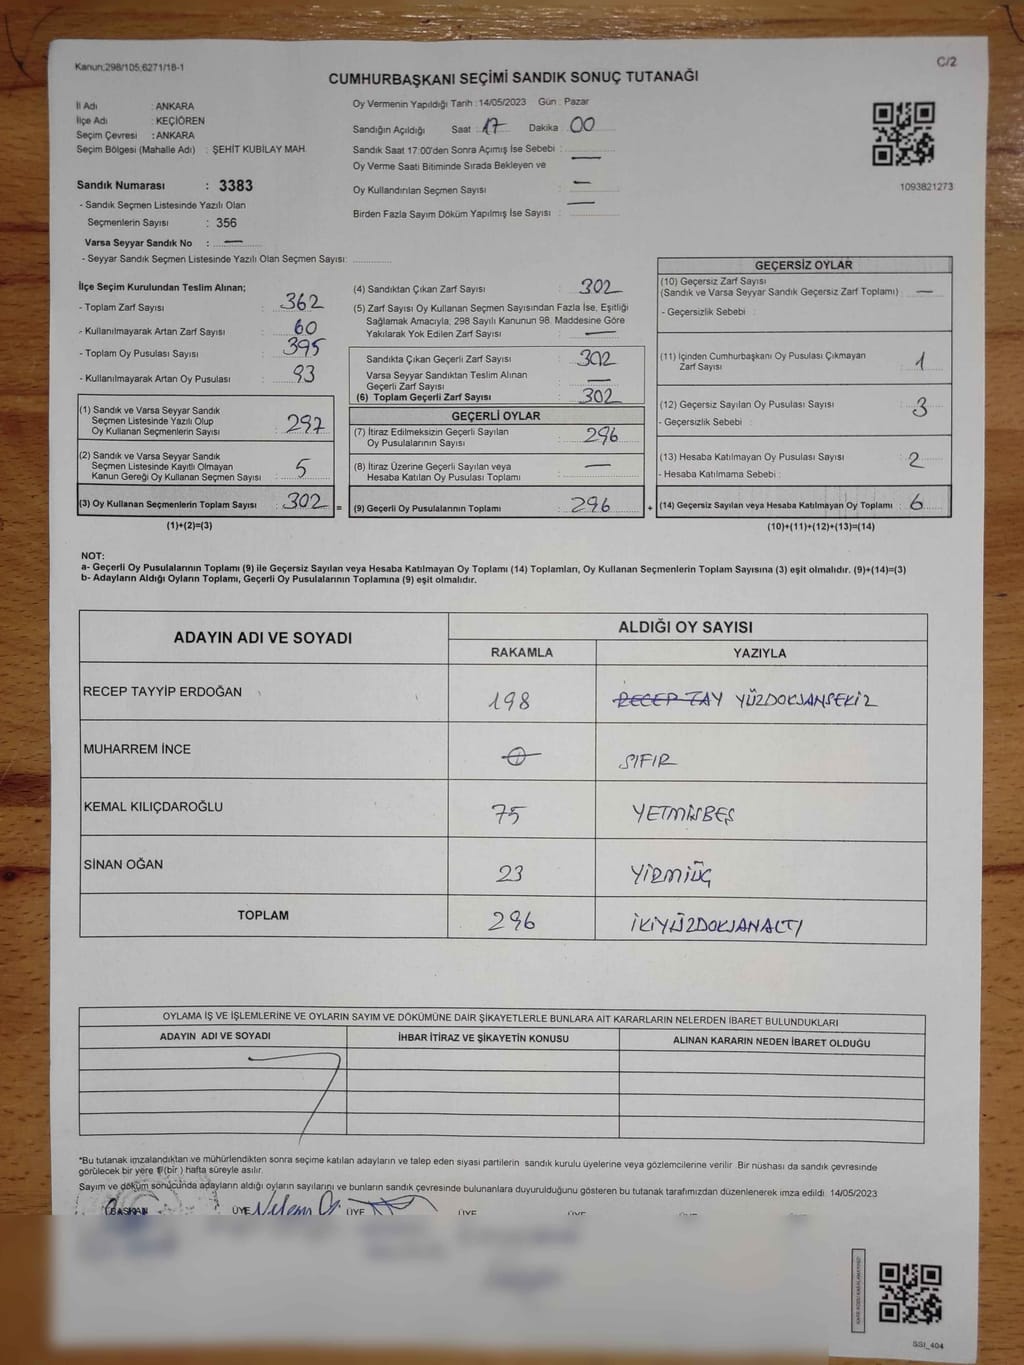 Kanun;298/105,6271/18-1
C/2
CUMHURBAŞKANI SEÇİMİ SANDIK SONUÇ TUTANAĞI
İl Adı : ANKARA
İlçe Adı : KEÇİÖREN
Seçim Çevresi : ANKARA
Seçim Bölgesi (Mahalle Adı) : ŞEHİT KUBİLAY MAH.
Sandık Numarası : 3383
- Sandık Seçmen Listesinde Yazılı Olan
Seçmenlerin Sayısı : 356
Varsa Seyyar Sandık No : —
- Seyyar Sandık Seçmen Listesinde Yazılı Olan Seçmen Sayısı:
Oy Vermenin Yapıldığı Tarih : 14/05/2023 Gün : Pazar
Sandığın Açıldığı Saat : 17 Dakika : 00
Sandık Saat 17:00'den Sonra Açımış İse Sebebi : —
Oy Verme Saati Bitiminde Sırada Bekleyen ve
Oy Kullandırılan Seçmen Sayısı : —
Birden Fazla Sayım Döküm Yapılmış İse Sayısı : —
1093821273
İlçe Seçim Kurulundan Teslim Alınan;
- Toplam Zarf Sayısı : 362
- Kullanılmayarak Artan Zarf Sayısı : 60
- Toplam Oy Pusulası Sayısı : 395
- Kullanılmayarak Artan Oy Pusulası : 93
(1) Sandık ve Varsa Seyyar Sandık
Seçmen Listesinde Yazılı Olup
Oy Kullanan Seçmenlerin Sayısı : 297
(2) Sandık ve Varsa Seyyar Sandık
Seçmen Listesinde Kayıtlı Olmayan
Kanun Gereği Oy Kullanan Seçmen Sayısı : 5
(3) Oy Kullanan Seçmenlerin Toplam Sayısı : 302 =
(1)+(2)=(3)
(4) Sandıktan Çıkan Zarf Sayısı : 302
(5) Zarf Sayısı Oy Kullanan Seçmen Sayısından Fazla İse, Eşitliği
Sağlamak Amacıyla, 298 Sayılı Kanunun 98. Maddesine Göre
Yakılarak Yok Edilen Zarf Sayısı : —
Sandıkta Çıkan Geçerli Zarf Sayısı : 302
Varsa Seyyar Sandıktan Teslim Alınan
Geçerli Zarf Sayısı : —
(6) Toplam Geçerli Zarf Sayısı : 302
GEÇERLİ OYLAR
(7) İtiraz Edilmeksizin Geçerli Sayılan
Oy Pusulalarının Sayısı : 296
(8) İtiraz Üzerine Geçerli Sayılan veya
Hesaba Katılan Oy Pusulası Toplamı : —
(9) Geçerli Oy Pusulalarının Toplamı : 296 +
GEÇERSİZ OYLAR
(10) Geçersiz Zarf Sayısı
(Sandık ve Varsa Seyyar Sandık Geçersiz Zarf Toplamı) : —
- Geçersizlik Sebebi :
(11) İçinden Cumhurbaşkanı Oy Pusulası Çıkmayan
Zarf Sayısı : 1
(12) Geçersiz Sayılan Oy Pusulası Sayısı : 3
- Geçersizlik Sebebi :
(13) Hesaba Katılmayan Oy Pusulası Sayısı : 2
- Hesaba Katılmama Sebebi :
(14) Geçersiz Sayılan veya Hesaba Katılmayan Oy Toplamı : 6
(10)+(11)+(12)+(13)=(14)
NOT:
a- Geçerli Oy Pusulalarının Toplamı (9) ile Geçersiz Sayılan veya Hesaba Katılmayan Oy Toplamı (14) Toplamları, Oy Kullanan Seçmenlerin Toplam Sayısına (3) eşit olmalıdır. (9)+(14)=(3)
b- Adayların Aldığı Oyların Toplamı, Geçerli Oy Pusulalarının Toplamına (9) eşit olmalıdır.
ADAYIN ADI VE SOYADI
ALDIĞI OY SAYISI
RAKAMLA YAZIYLA
RECEP TAYYİP ERDOĞAN 198 RECEP TAY YÜZDOKSANSEKİZ
MUHARREM İNCE 0 SIFIR
KEMAL KILIÇDAROĞLU 75 YETMİŞBEŞ
SİNAN OĞAN 23 YİRMİÜÇ
TOPLAM 296 İKİYÜZDOKSANALTI
OYLAMA İŞ VE İŞLEMLERİNE VE OYLARIN SAYIM VE DÖKÜMÜNE DAİR ŞİKAYETLERLE BUNLARA AİT KARARLARIN NELERDEN İBARET BULUNDUKLARI
ADAYIN ADI VE SOYADI İHBAR İTİRAZ VE ŞİKAYETİN KONUSU ALINAN KARARIN NEDEN İBARET OLDUĞU
*Bu tutanak imzalandıktan ve mühürlendikten sonra seçime katılan adayların ve talep eden siyasi partilerin sandık kurulu üyelerine veya gözlemcilerine verilir. Bir nüshası da sandık çevresinde
görülecek bir yere 1(bir) hafta süreyle asılır.
Sayım ve döküm sonucunda adayların aldığı oyların sayılarını ve bunların sandık çevresinde bulunanlara duyurulduğunu gösteren bu tutanak tarafımızdan düzenlenerek imza edildi. 14/05/2023
BAŞKAN ÜYE ÜYE ÜYE ÜYE ÜYE
SSI_404